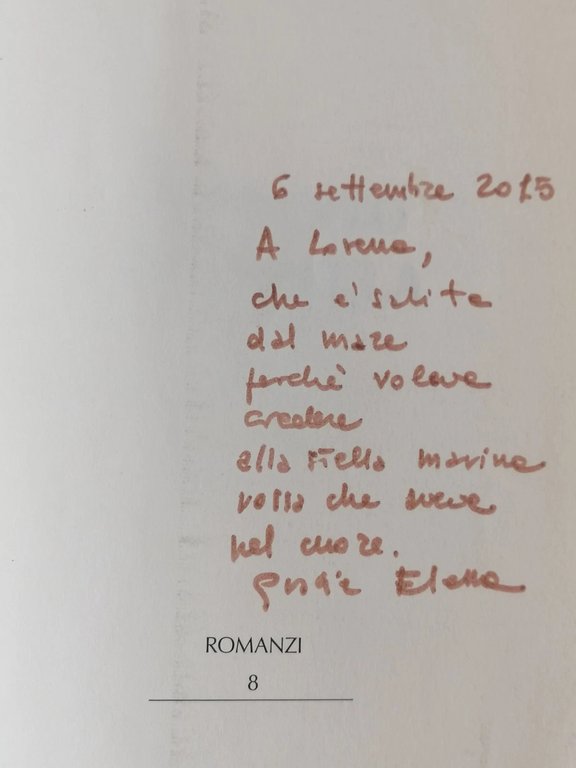 6 settembre 2015
A Lorena,
che e' salita
dal mare
perchè voleva
credere
alla stella marina
rossa che aveva
nel cuore.
ROMANZI
8